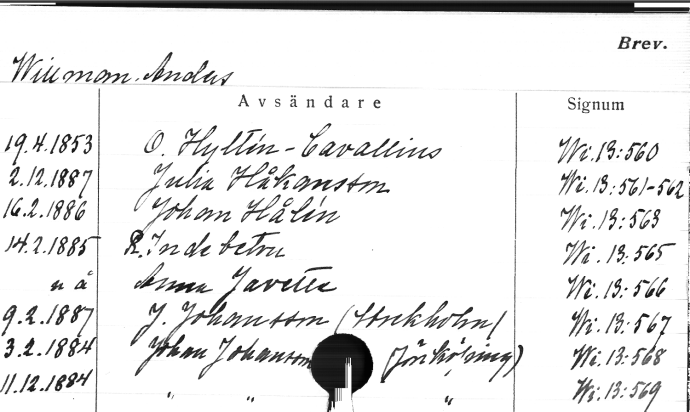 Brev.
Willman. Anders
Avsändare Signum
19.4.1853 O. Hyltén-Cavallius Wi.13:560
2.12.1887 Julia Håkansson Wi.13:561-562
16.2.1886 Johan Hålén Wi.13:563
14.2.1885 R. Indebetou Wi.13:565
n å Anna Wi.13:566
9.2.1887 J. Johansson (Stockholm) Wi.13:567
3.2.1884 Johan Johansson (Jönköping) Wi.13:568
11.12.1884 " " " Wi.13:569